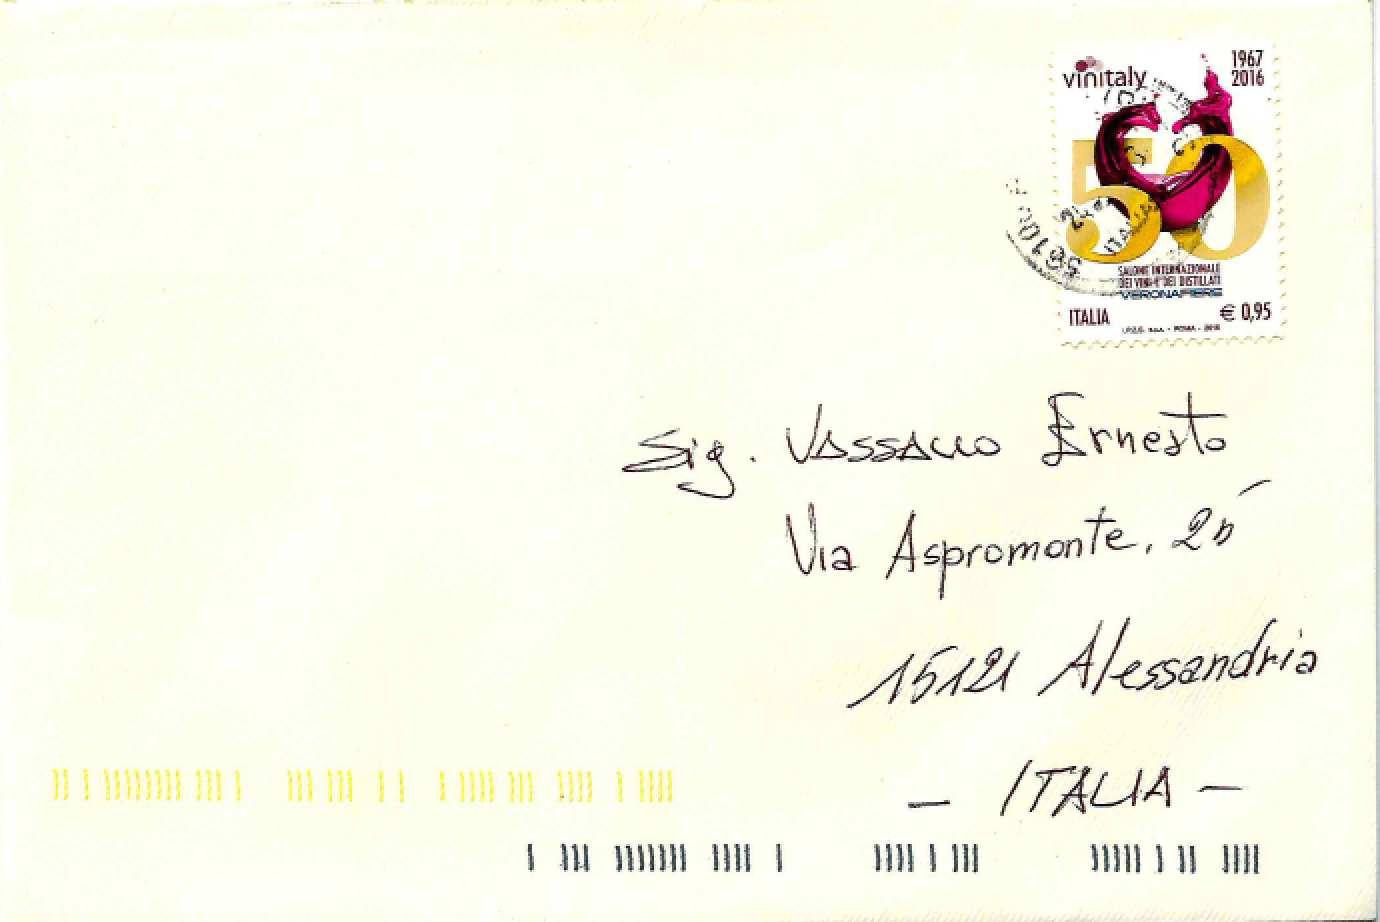 vinitaly
1967
2016
50
SALONE INTERNAZIONALE
DEI VINI E DEI DISTILLATI
VERONAFIERE
ITALIA
€ 0,95
I.P.Z.S. S.p.A. - ROMA - 2016
Sig. VASSALLO Ernesto
Via Aspromonte, 25
15121 Alessandria
- ITALIA -